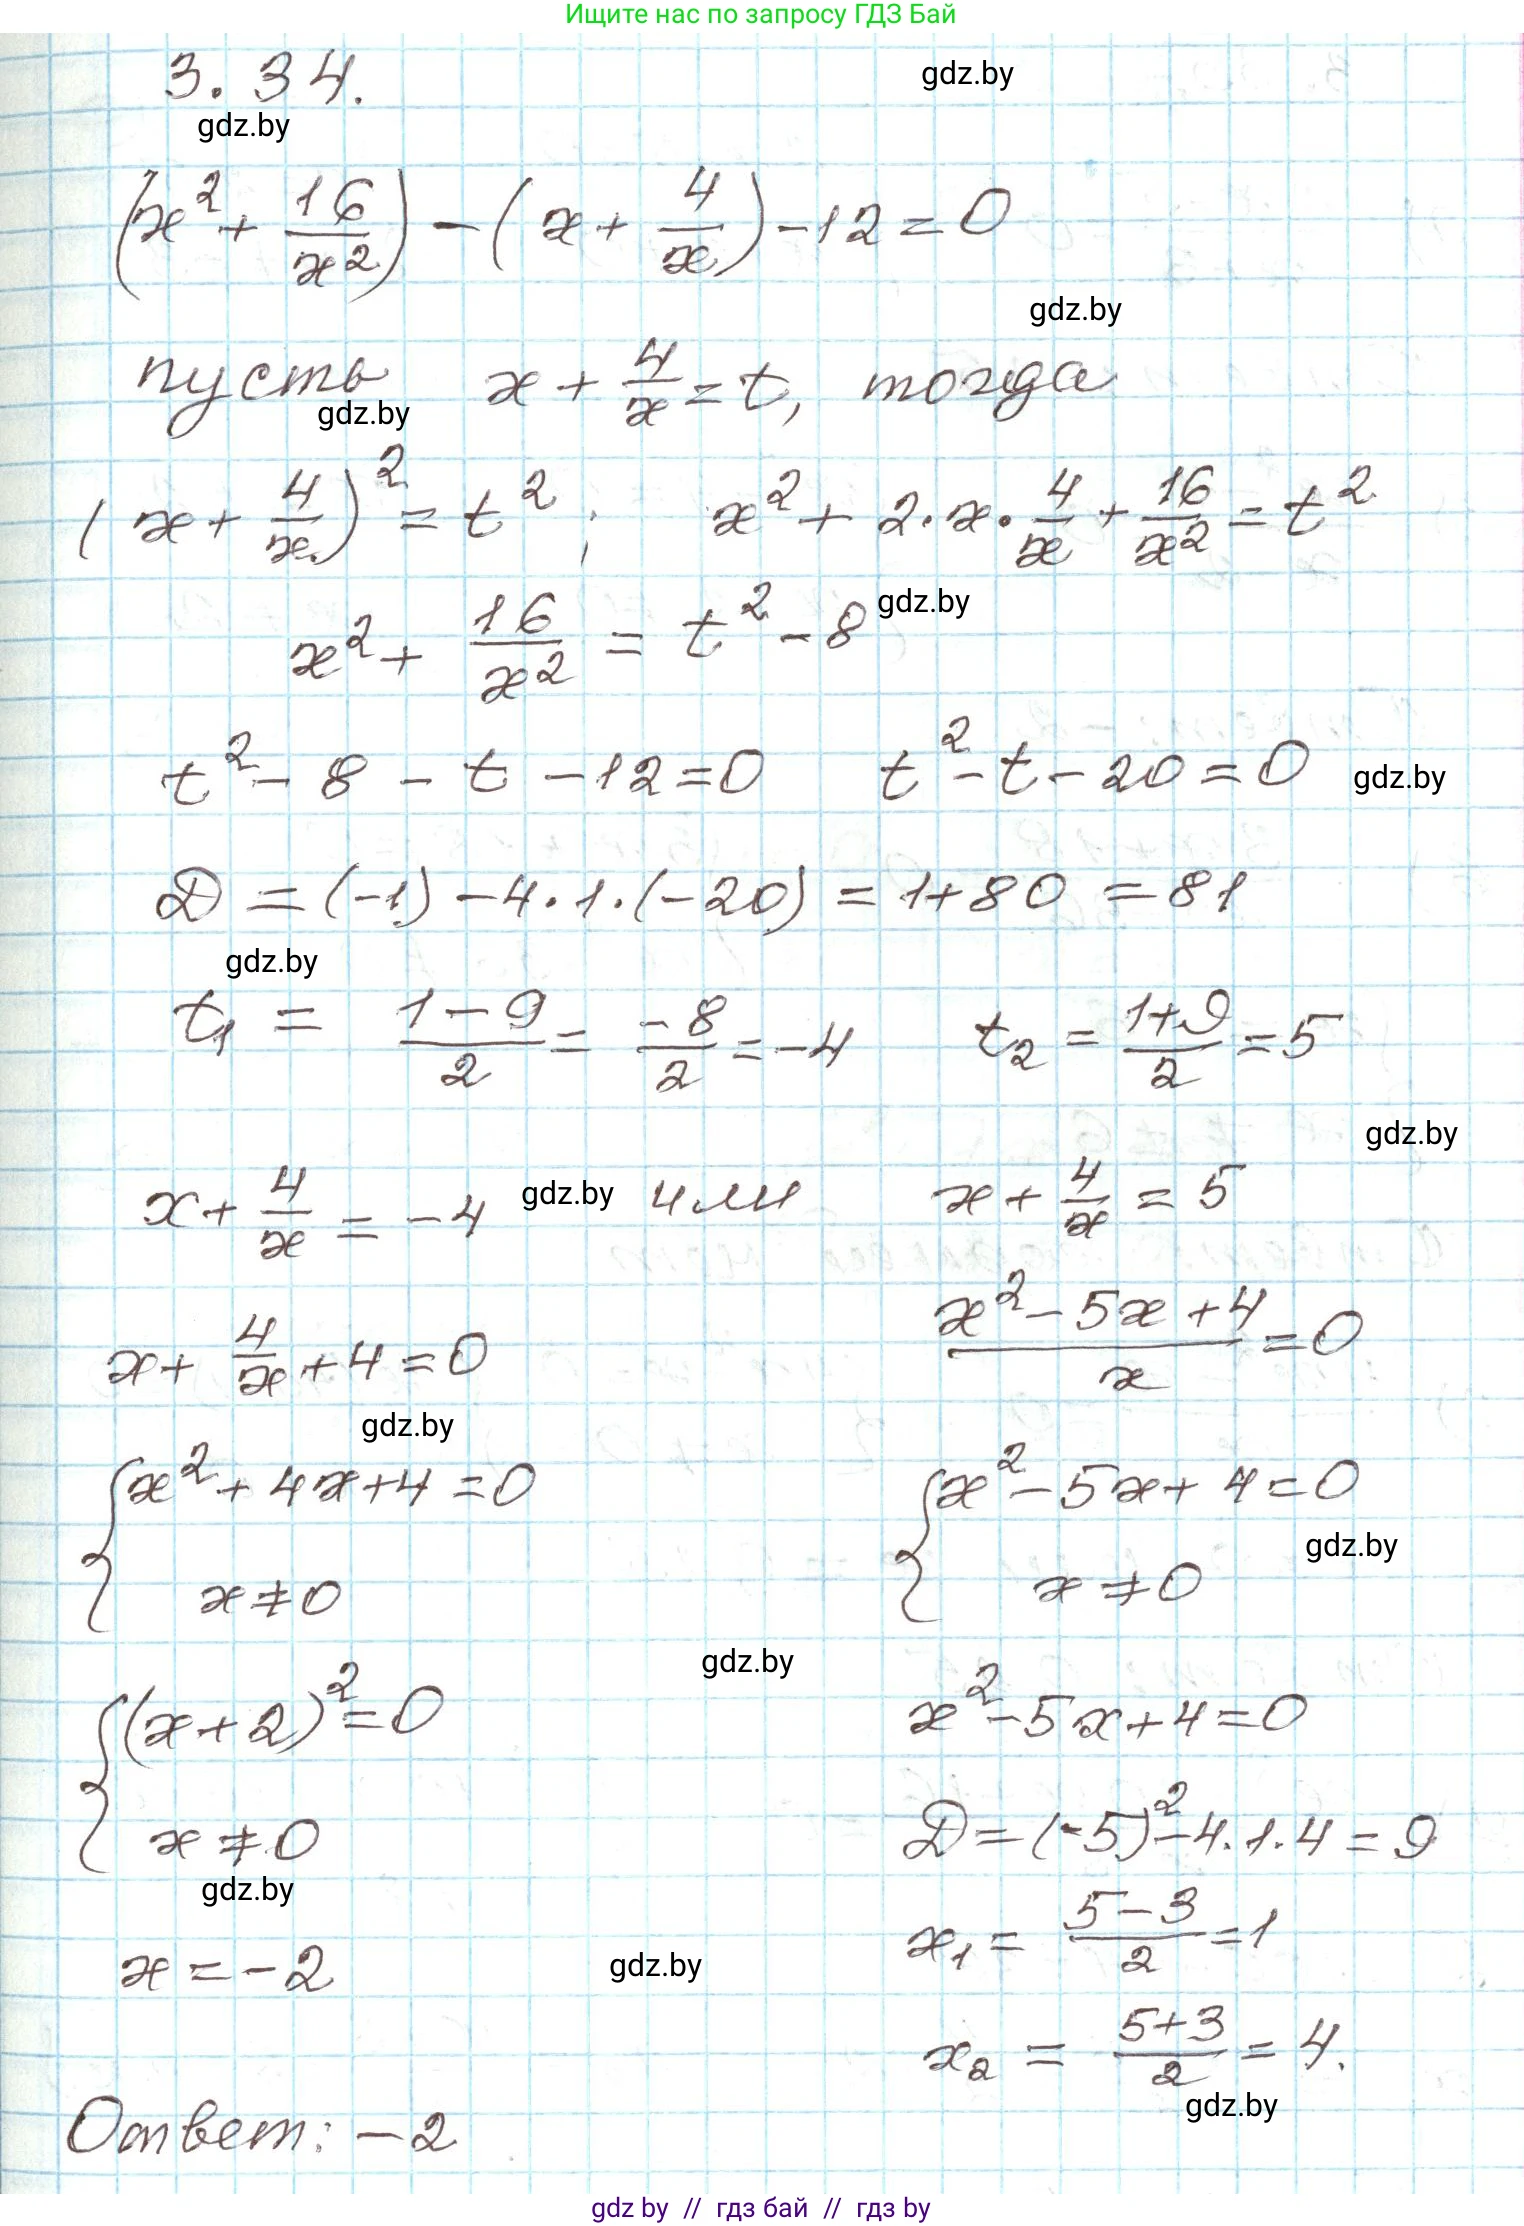 Ищите нас по запросу ГДЗ Бай
3.34.
gdz.by
gdz.by
(x² + 16/x²) - (x + 4/x) - 12 = 0
gdz.by
пусть x + 4/x = t, тогда
gdz.by
(x + 4/x)² = t²; x² + 2·x·4/x + 16/x² = t²
x² + 16/x² = t² - 8
gdz.by
t² - 8 - t - 12 = 0 t² - t - 20 = 0
gdz.by
D = (-1) - 4·1·(-20) = 1 + 80 = 81
gdz.by
t₁ = (1 - 9)/2 = -8/2 = -4 t₂ = (1+9)/2 = 5
gdz.by
x + 4/x = -4 gdz.by или x + 4/x = 5
x + 4/x + 4 = 0 (x² - 5x + 4)/x = 0
gdz.by
{x² + 4x + 4 = 0 {x² - 5x + 4 = 0
gdz.by
x ≠ 0 x ≠ 0
gdz.by
{(x + 2)² = 0 x² - 5x + 4 = 0
x ≠ 0 D = (-5)² - 4·1·4 = 9
gdz.by
x = -2 x₁ = (5 - 3)/2 = 1
gdz.by
x₂ = (5+3)/2 = 4.
gdz.by
Ответ: -2
gdz by // гдз бай // гдз by